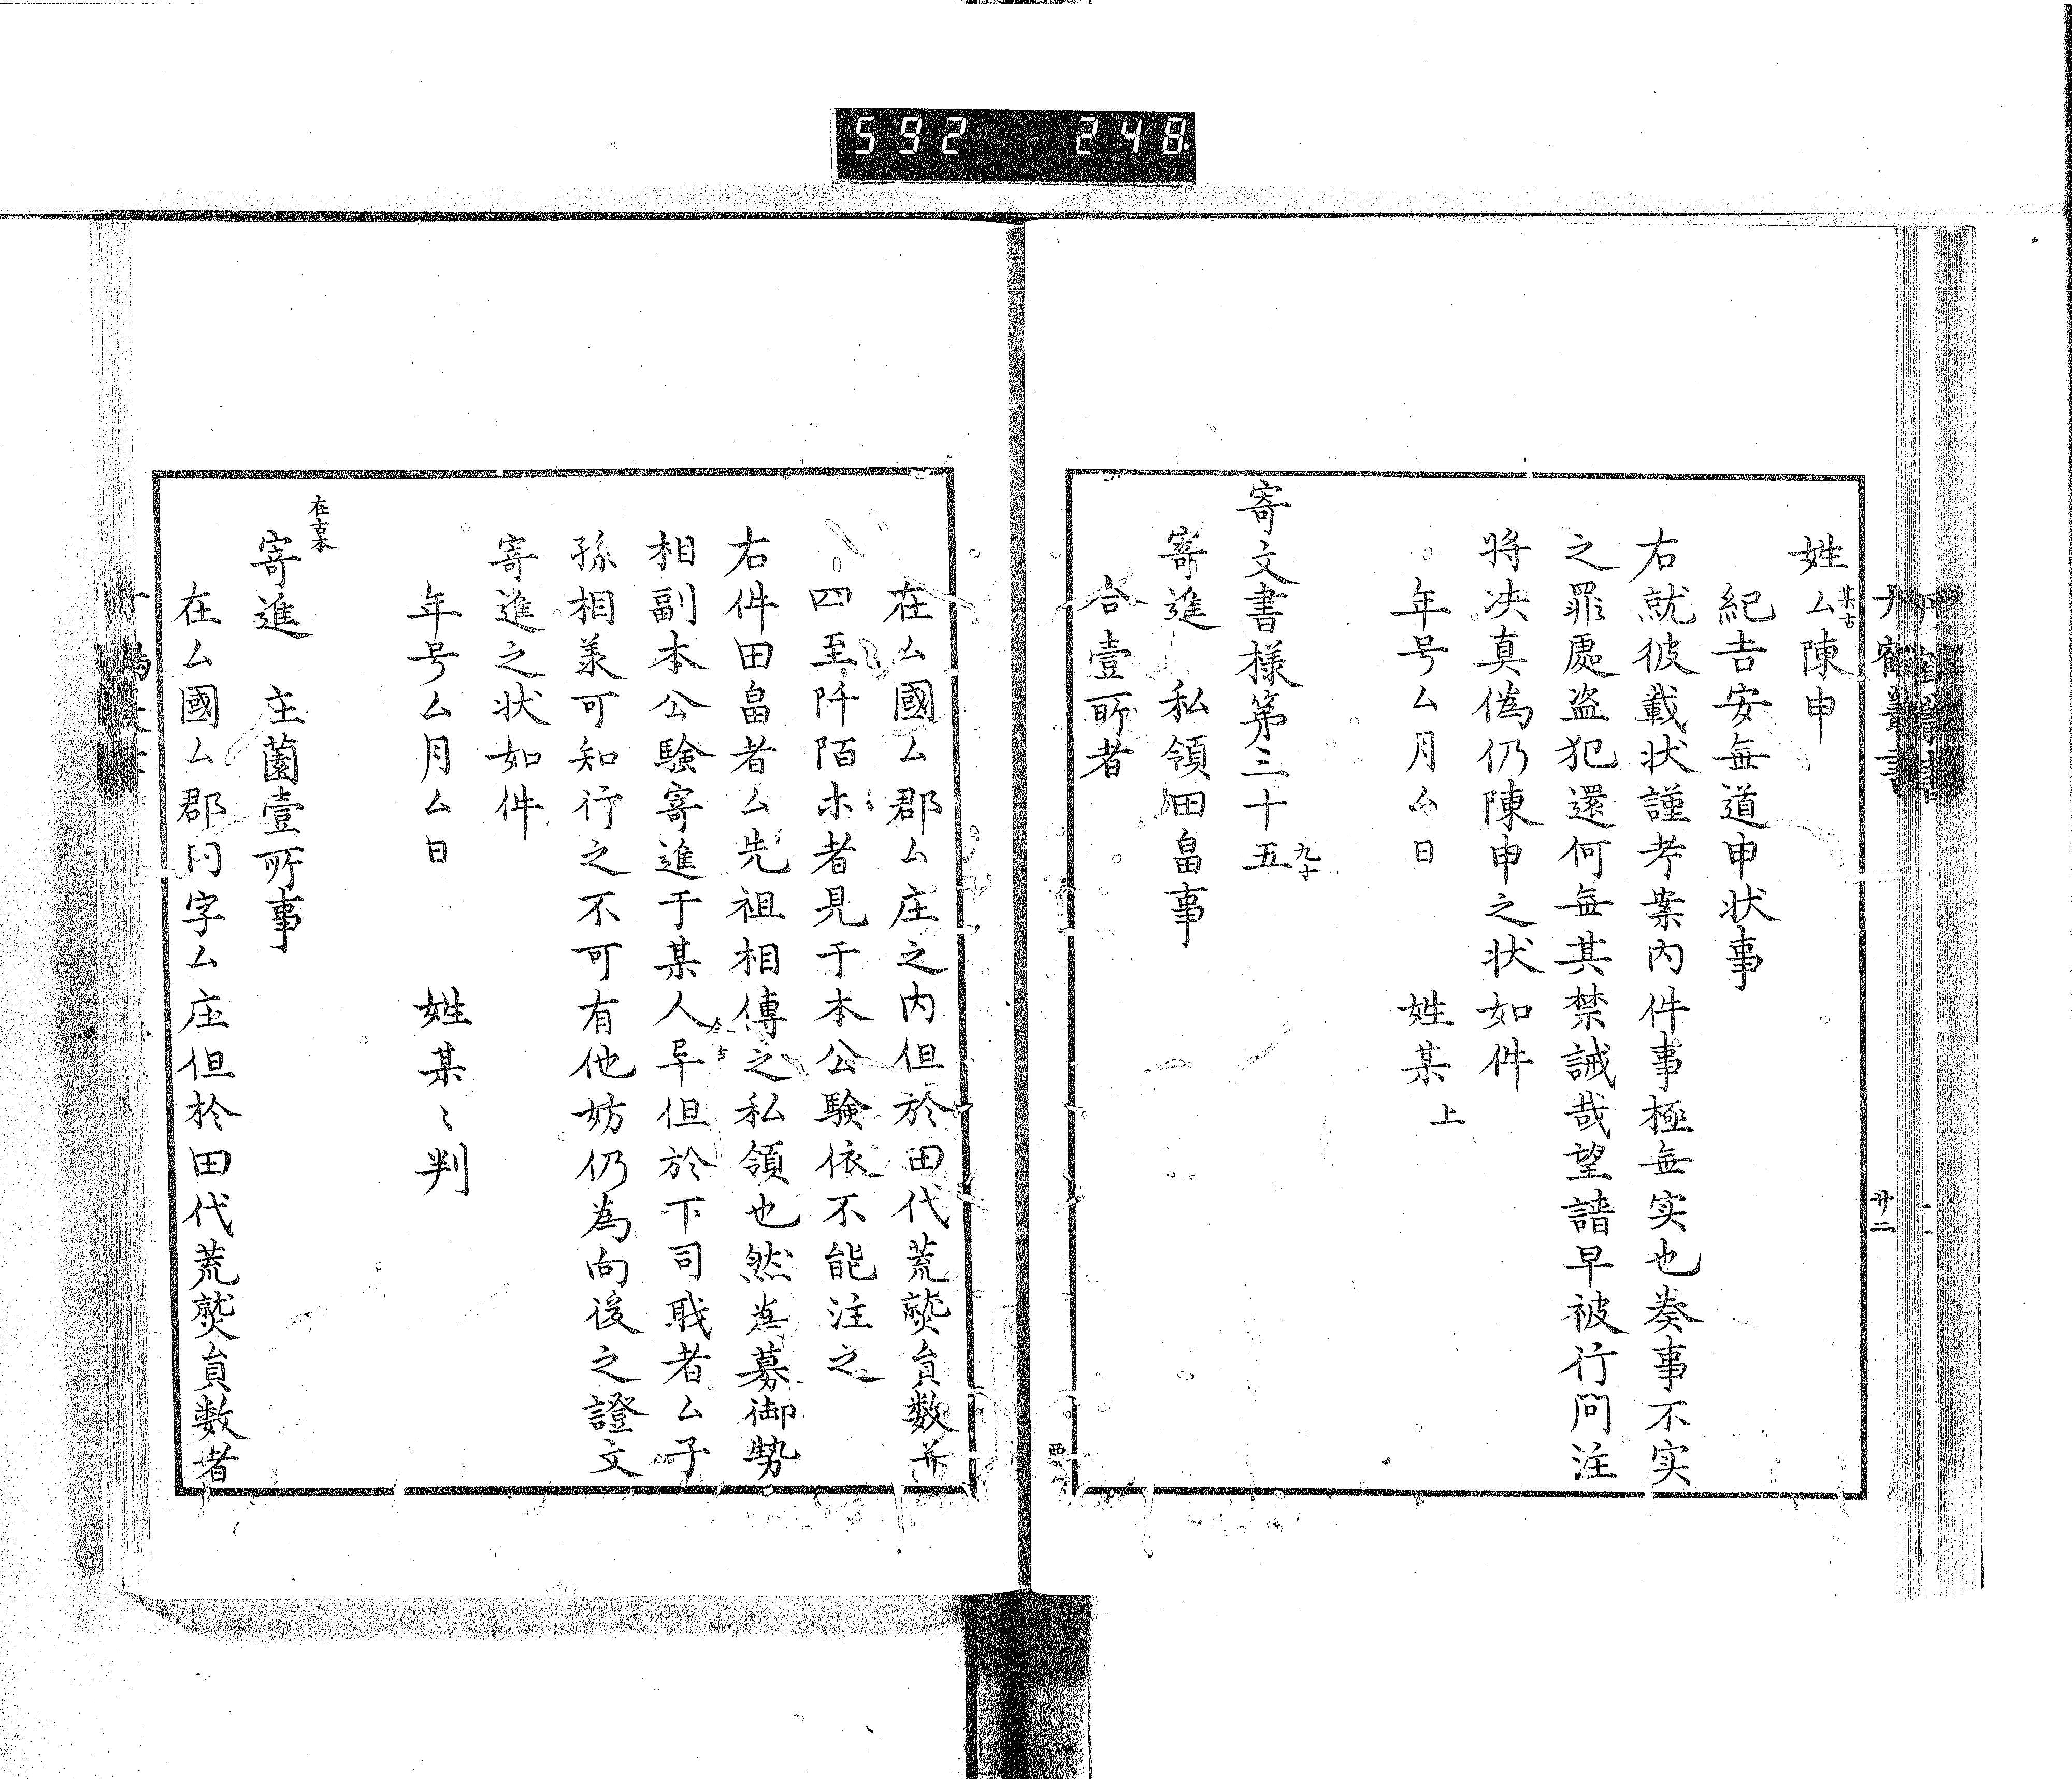 592 248
丹鶴叢書
廿二
姓ム某古陳申
紀吉安無道申状事
右就彼載状謹考案内件事極無実也奏事不実
之罪處盗犯還何無其禁誡哉望請早被行問注
将决真偽仍陳申之状如件
年号ム月ム日 姓某上
寄文書様第三十五九十
寄進 私領田畠事
合壹所者
在ム國ム郡ム庄之内但於田代荒熟員数并
四至阡陌ホ者見于本公驗依不能注之
右件田畠者ム先祖相傳之私領也然為募御勢
相副本公驗寄進于某人畢但於下司職者ム子
孫相羕可知行之不可有他妨仍為向後之證文
寄進之状如件
年号ム月ム日 姓某〻判
在古本
寄進 庄薗壹所事
在ム國ム郡門字ム庄但於田代荒熟員数者